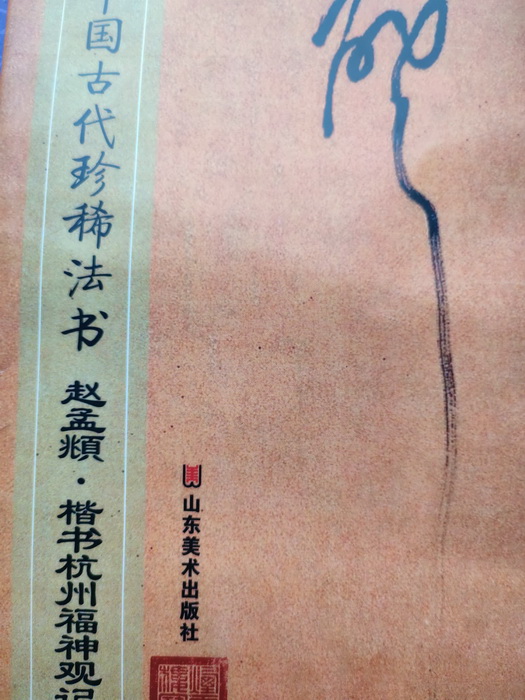 中国古代珍稀法书
赵孟頫·楷书杭州福神观记
山东美术出版社